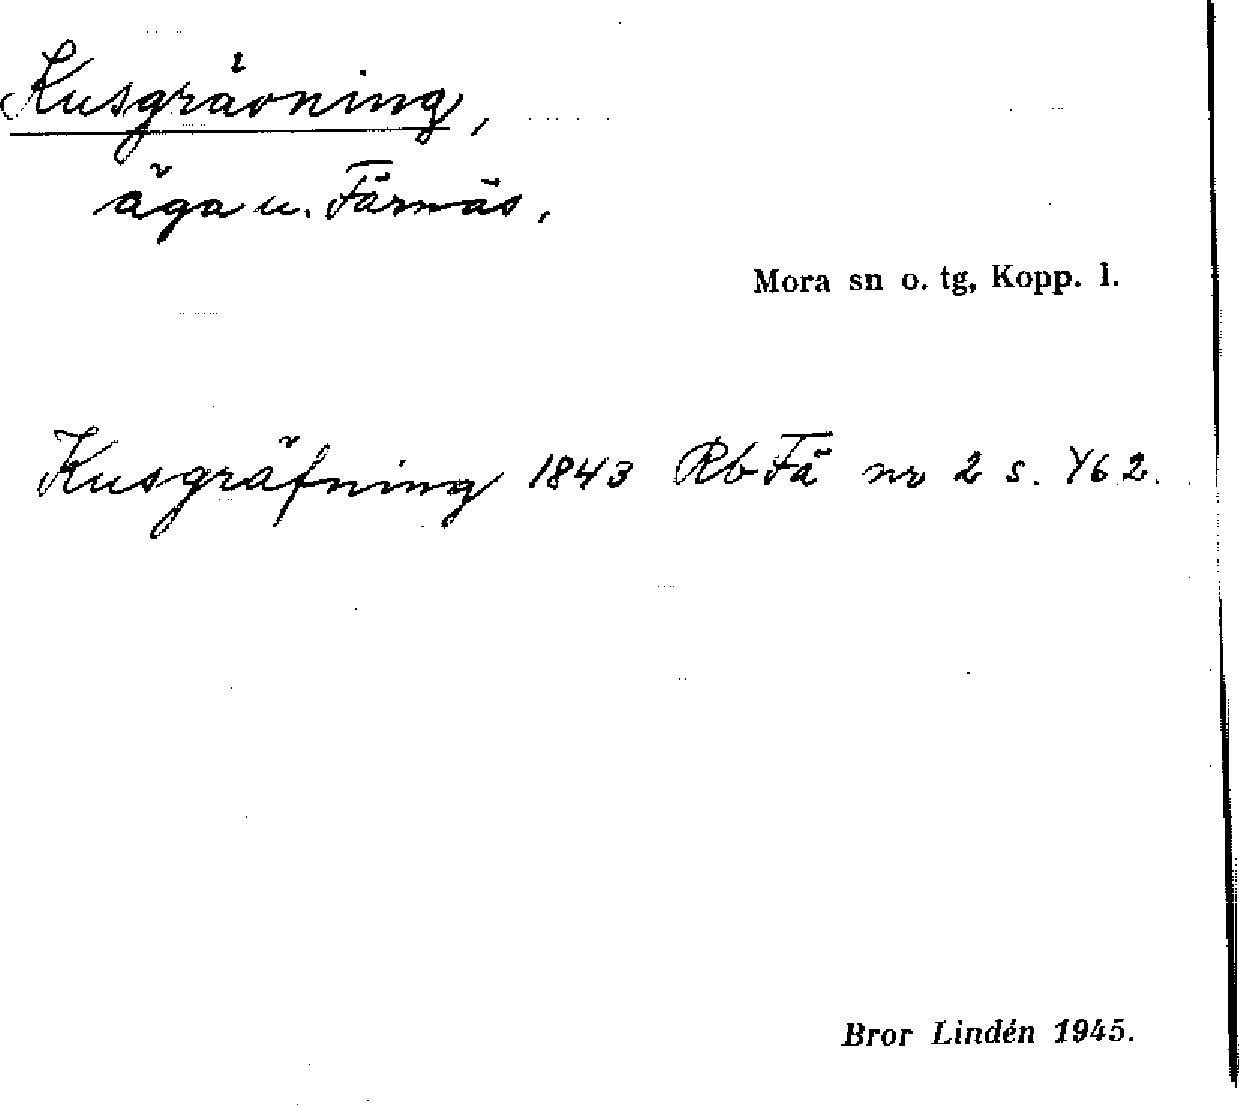 Kusgrävning,
äga u. Färnäs,
Mora sn o. tg, Kopp. l.
Kusgräfning 1843 Rb Fä nr 2 s. 462.
Bror Lindén 1945.